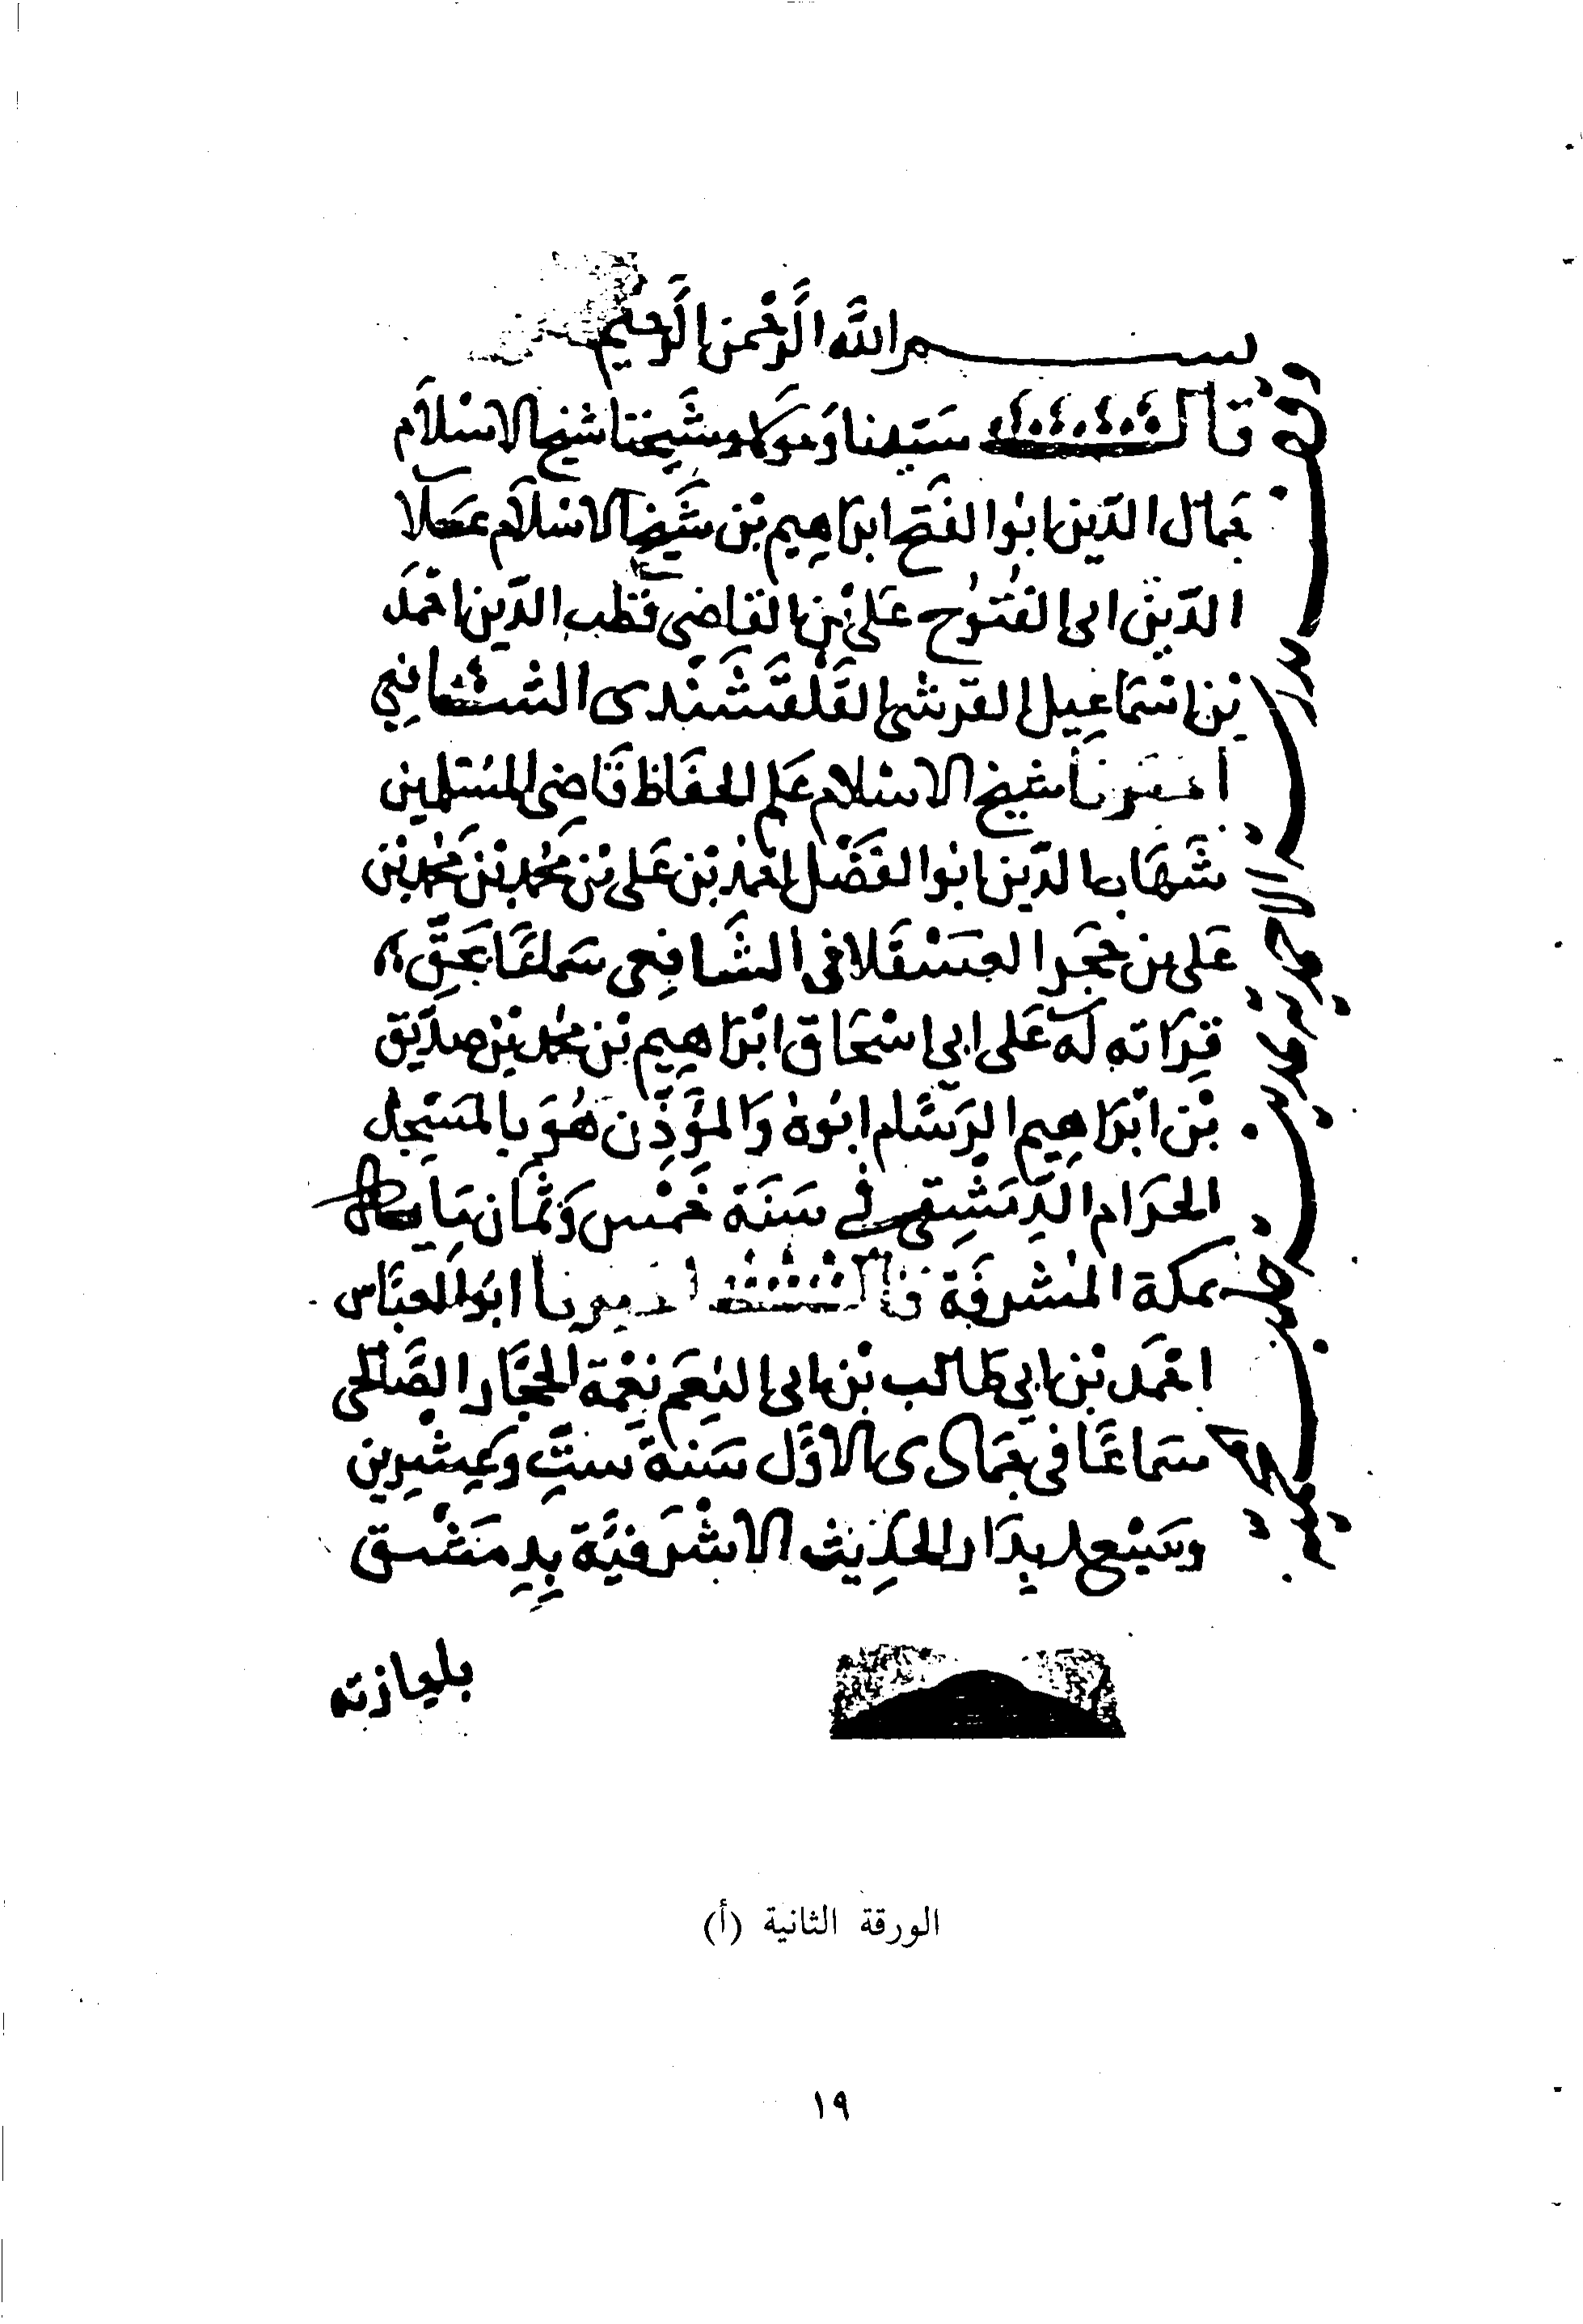 بسم الله الرحمن الرحيم
قال سيدنا ومولانا وشيخنا شيخ الاسلام
جمال الدين ابوا الفتح ابراهيم بن شيخ الاسلام علا
الدين ابى الفتوح على بن القاضى قطب الدين احمد
بن اسماعيل القرشى القلقشندى الشافعي
أخبرنا شيخ الاسلام علم الحفاظ قاضى المسلمين
شهاب الدين ابوا الفضل احمد بن على بن محمد بن محمد بن
على بن حجر العسقلانى الشافعى سماعًا بحق
قراته له على ابي اسحاق ابراهيم بن محمد بن صديق
بن ابراهيم الرسام ابوه والمؤذن هو بالمسجد
الحرام الدمشقى في سنة خمس وثمان ماية
بمكة المشرفة قال اخبرنا ابوا العباس
احمد بن ابي طالب بن ابى النعم نعمة الحجار الصالحى
سماعًا فى جمادى الاول سنة ست وعشرين
وسبع بدار الحديث الاشرفية بدمشق
باجازته
الورقة الثانية (أ)
١٩